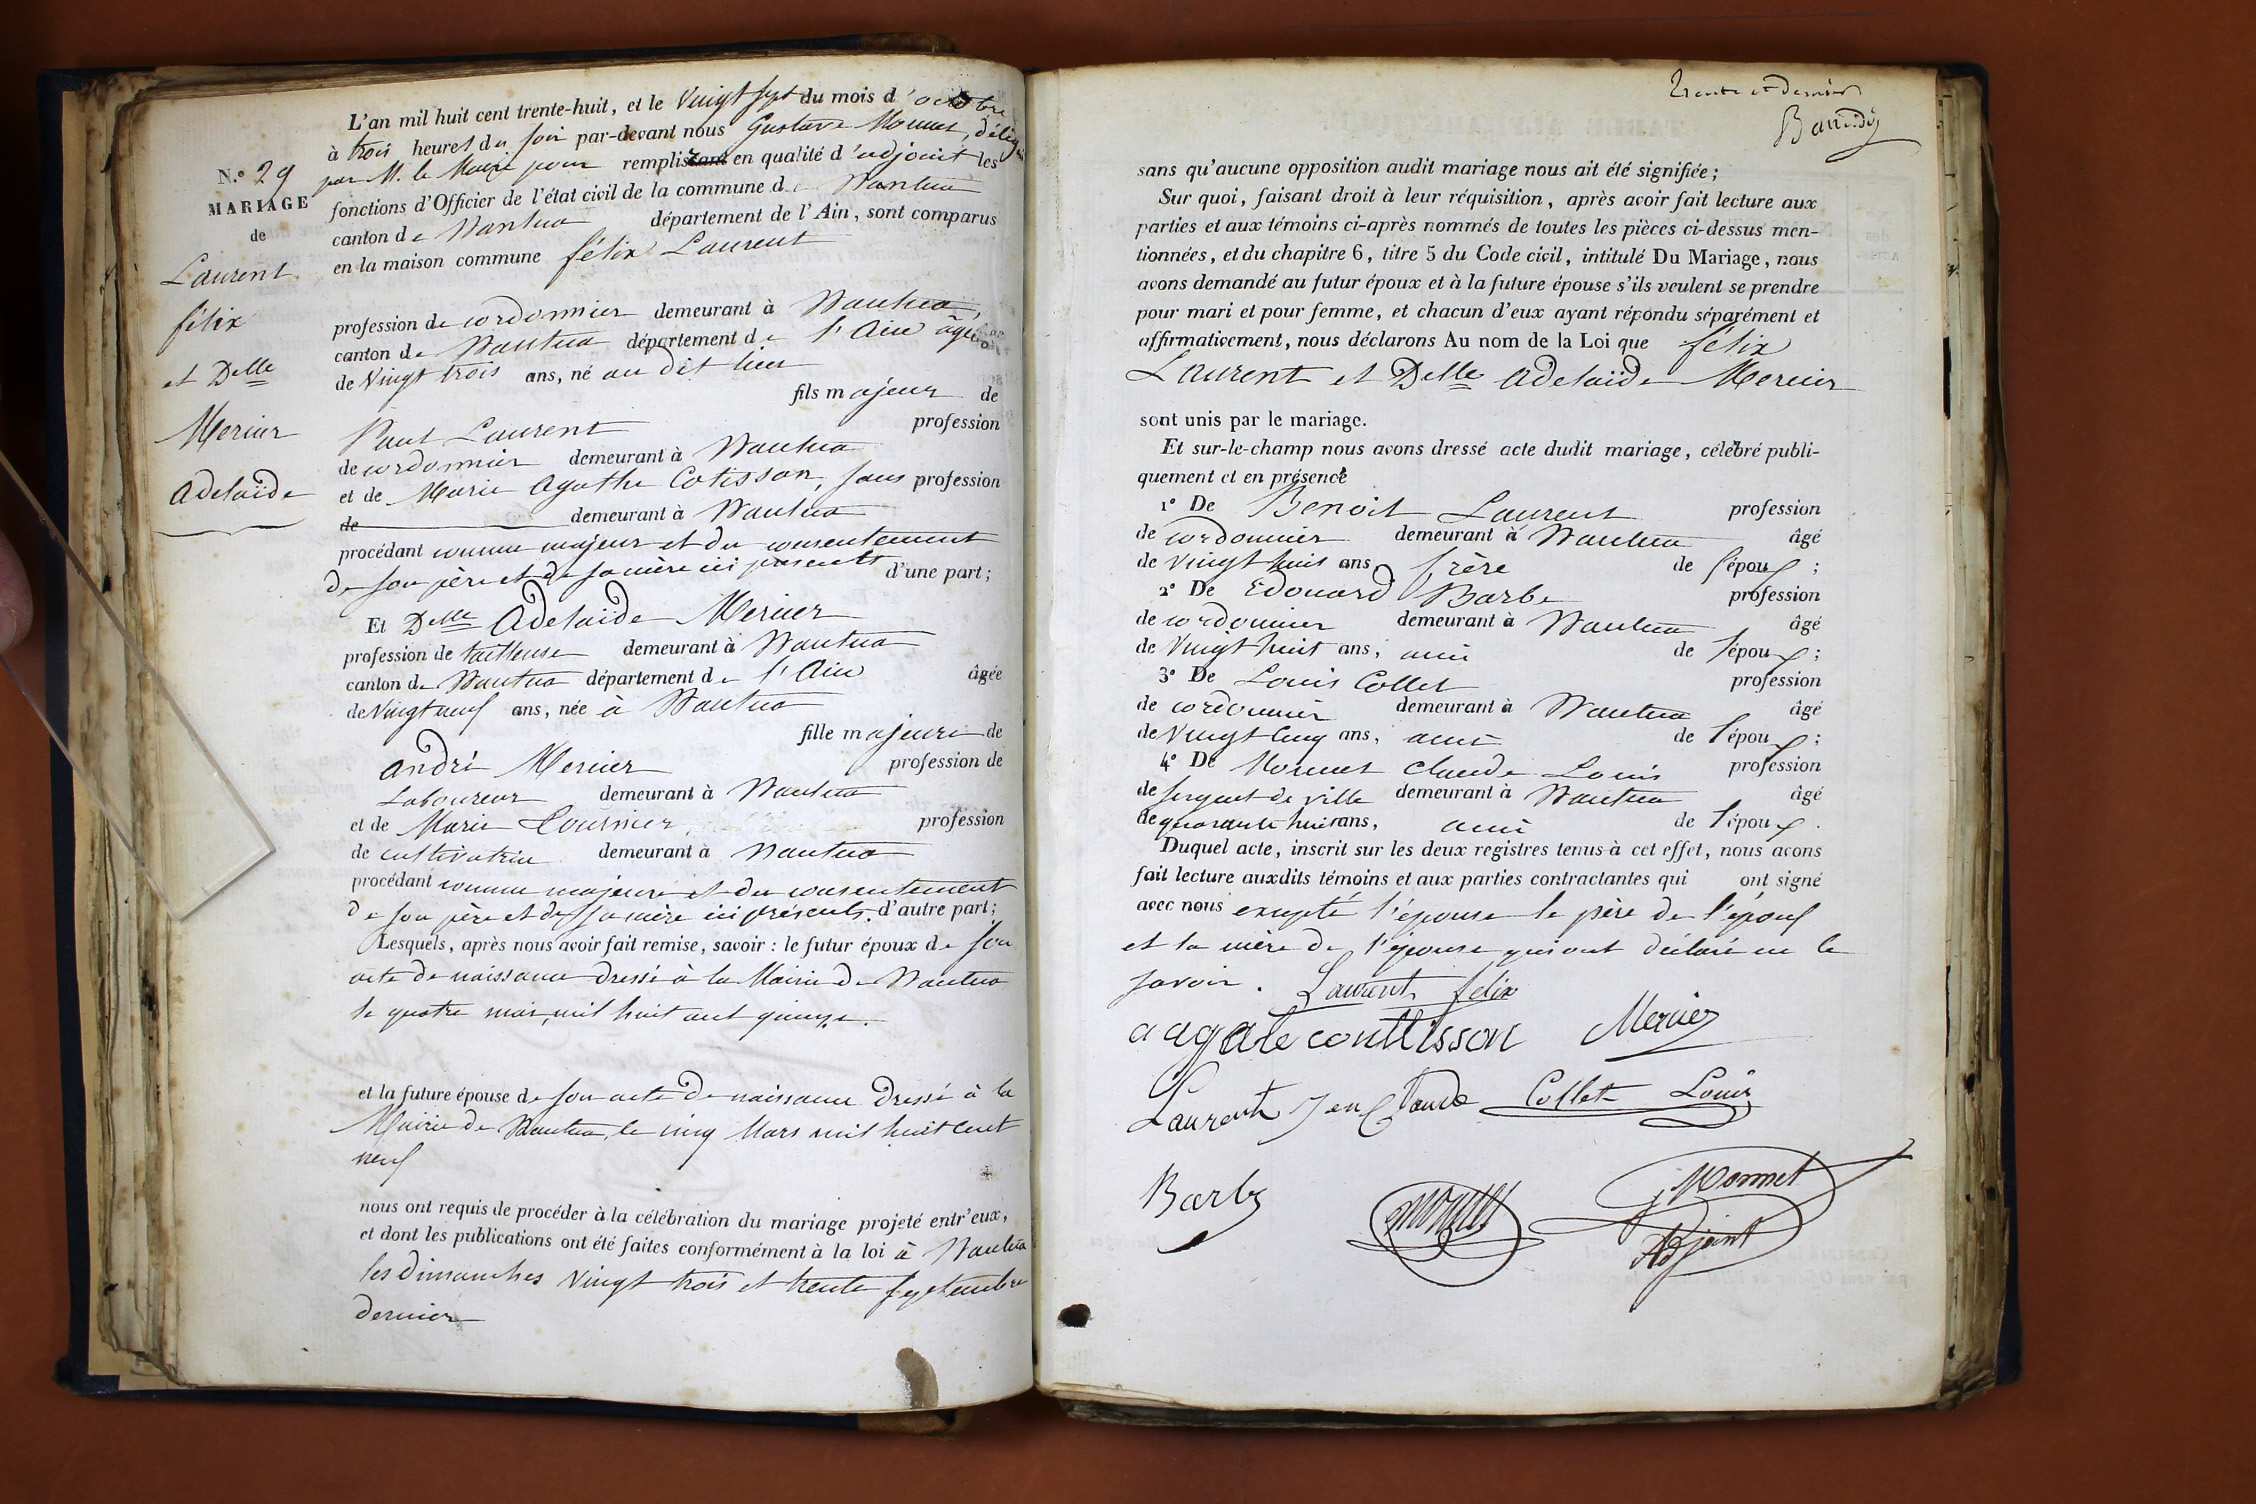 L'an mil huit cent trente-huit, et le Vingt sept du mois d'octobre
à trois heures du soir par-devant nous Gustave Monnet, délégué
par M. le Maire pour remplissant en qualité d'adjoint les
fonctions d'Officier de l'état civil de la commune de Nantua
canton de Nantua département de l'Ain, sont comparus
en la maison commune félix Laurent
profession de cordonnier demeurant à Nantua,
canton de Nantua département de l'Ain âgé
de Vingt trois ans, né au dit lieu
fils majeur de
Paul Laurent profession
de cordonnier demeurant à Nantua
et de Marie Agathe Cotisson, sans profession
de demeurant à Nantua
procédant comme majeur et du consentement
de son père et de sa mère ici présents d'une part;
Et Delle Adelaïde Mercier
profession de tailleuse demeurant à Nantua
canton de Nantua département de l'Ain âgée
de Vingt neuf ans, née à Nantua
fille majeure de
andré Mercier profession de
Laboureur demeurant à Nantua
et de Marie profession
de cultivatrice demeurant à Nantua
procédant comme majeure et du consentement
de son père et de sa mère ici présents. d'autre part;
Lesquels, après nous avoir fait remise, savoir: le futur époux de son
acte de naissance dressé à la Mairie de Nantua
le quatre mars, mil huit cent quinze.
et la future épouse de son acte de naissance dressé à la
Mairie de Nantua, le cinq Mars mil huit cent
neuf
nous ont requis de procéder à la célébration du mariage projeté entr'eux,
et dont les publications ont été faites conformément à la loi à Nantua
les dimanches Vingt trois et trente septembre
dernier
N.° 29
MARIAGE
de
Laurent
félix
et Delle
Mercier
Adelaïde
trente et dernier
sans qu'aucune opposition audit mariage nous ait été signifiée;
Sur quoi, faisant droit à leur réquisition, après avoir fait lecture aux
parties et aux témoins ci-après nommés de toutes les pièces ci-dessus men-
tionnées, et du chapitre 6, titre 5 du Code civil, intitulé Du Mariage, nous
avons demandé au futur époux et à la future épouse s'ils veulent se prendre
pour mari et pour femme, et chacun d'eux ayant répondu séparément et
affirmativement, nous déclarons Au nom de la Loi que félix
Laurent et Delle Adelaïde Mercier
sont unis par le mariage.
Et sur-le-champ nous avons dressé acte dudit mariage, célébré publi-
quement et en présence
1° De Benoit Laurent profession
de cordonnier demeurant à Nantua âgé
de vingt huit ans, frère de l'époux;
2° De Edouard Barbe profession
de cordonnier demeurant à Nantua âgé
de Vingt huit ans, ami de l'époux;
3° De Louis Collet profession
de cordonnier demeurant à Nantua âgé
de Vingt cinq ans, ami de l'époux;
4° De Monnet Claude Louis profession
de sergent de ville demeurant à Nantua âgé
de quarante huit ans, ami de l'époux.
Duquel acte, inscrit sur les deux registres tenus à cet effet, nous avons
fait lecture auxdits témoins et aux parties contractantes qui ont signé
avec nous excepté l'épouse le père de l'époux
et la mère de l'épouse qui ont déclaré ne le
savoir. Laurent félix
agate conttisson Mercier
Laurent Collet Louis
Barbe
Monnet
Monnet
Adjoint